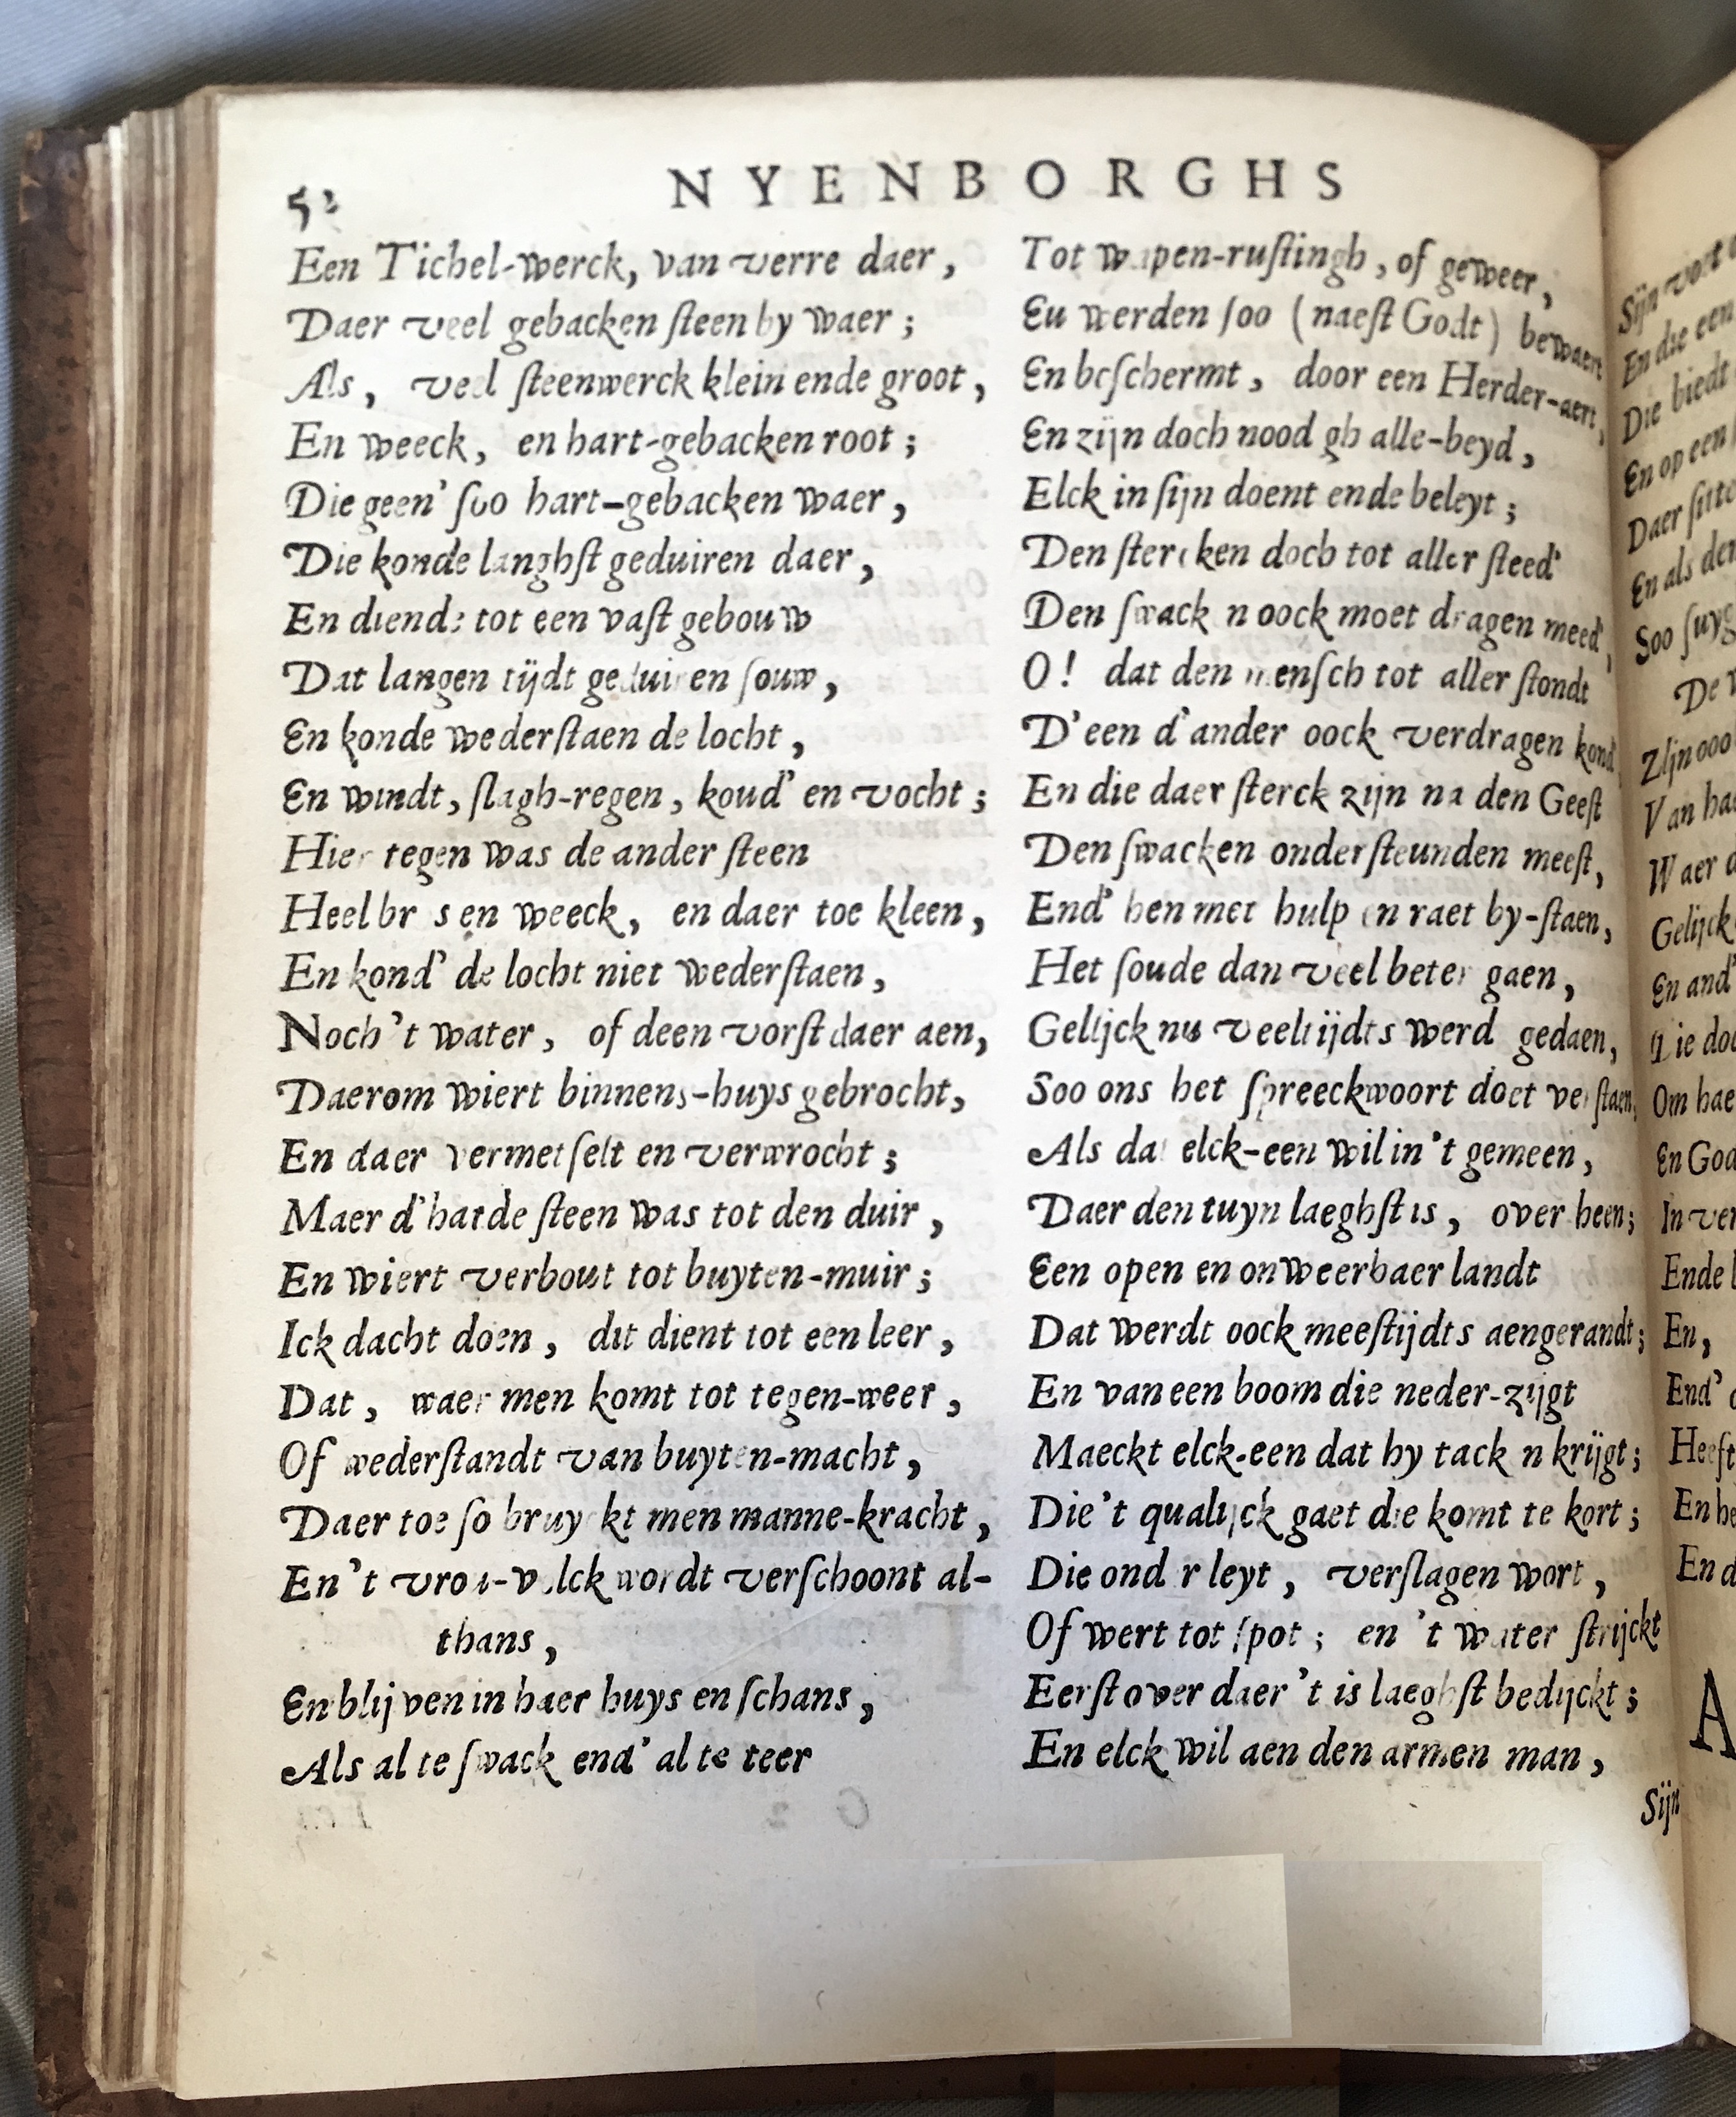 52
NYENBORGHS
Een Tichel-werck, van verre daer,
Daer veel gebacken steen by waer;
Als, veel steenwerck klein ende groot,
En weeck, en hart-gebacken root;
Die geen' soo hart-gebacken waer,
Die konde langhst geduiren daer,
En diende tot een vast gebouw
Dat langen tijdt geduiren souw,
En konde wederstaen de locht,
En windt, slagh-regen, koud' en vocht;
Hier tegen was de ander steen
Heel br s en weeck, en daer toe kleen,
En kond' de locht niet wederstaen,
Noch 't water, of deen vorst daer aen,
Daerom wiert binnens-huys gebrocht,
En daer vermetselt en verwrocht;
Maer d'harde steen was tot den duir,
En wiert verbout tot buyten-muir;
Ick dacht doen, dit dient tot een leer,
Dat, waer men komt tot tegen-weer,
Of wederstandt van buyten-macht,
Daer toe so bruyckt men manne-kracht,
En 't vrou-volck wordt verschoont al-
thans,
En blijven in haer huys en schans,
Als al te swack end' al te teer
Tot wapen-rustingh, of geweer,
Eu werden soo (naest Godt) bewaert
En beschermt, door een Herder-aert,
En zijn doch noodigh alle-beyd,
Elck in sijn doent ende beleyt;
Den stercken doch tot aller steed'
Den swacken oock moet dragen meed',
O! dat den mensch tot aller stondt
D'een d'ander oock verdragen kond'
En die daer sterck zijn na den Geest
Den swacken ondersteunden meest,
End' hen met hulp en raet by-staen,
Het soude dan veel beter gaen,
Gelijck nu veeltijdts werd gedaen,
Soo ons het spreeckwoort doet verstaen,
Als dat elck-een wil in 't gemeen,
Daer den tuyn laeghst is, over heen;
Een open en onweerbaer landt
Dat werdt oock meestijdts aengerandt;
En van een boom die neder-zijgt
Maeckt elck-een dat hy tacken krijgt;
Die 't qualijck gaet die komt te kort;
Die onder leyt, verslagen wort,
Of wert tot spot; en 't water strijckt
Eerst over daer 't is laeghst bedijckt;
En elck wil aen den armen man,
Sijn